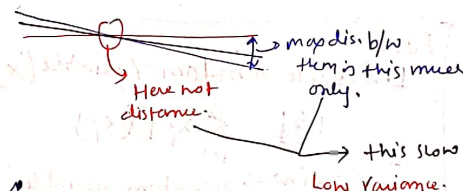 max dis. b/w
them is this much
only.
Here not
distance.
this slow
Low variance.